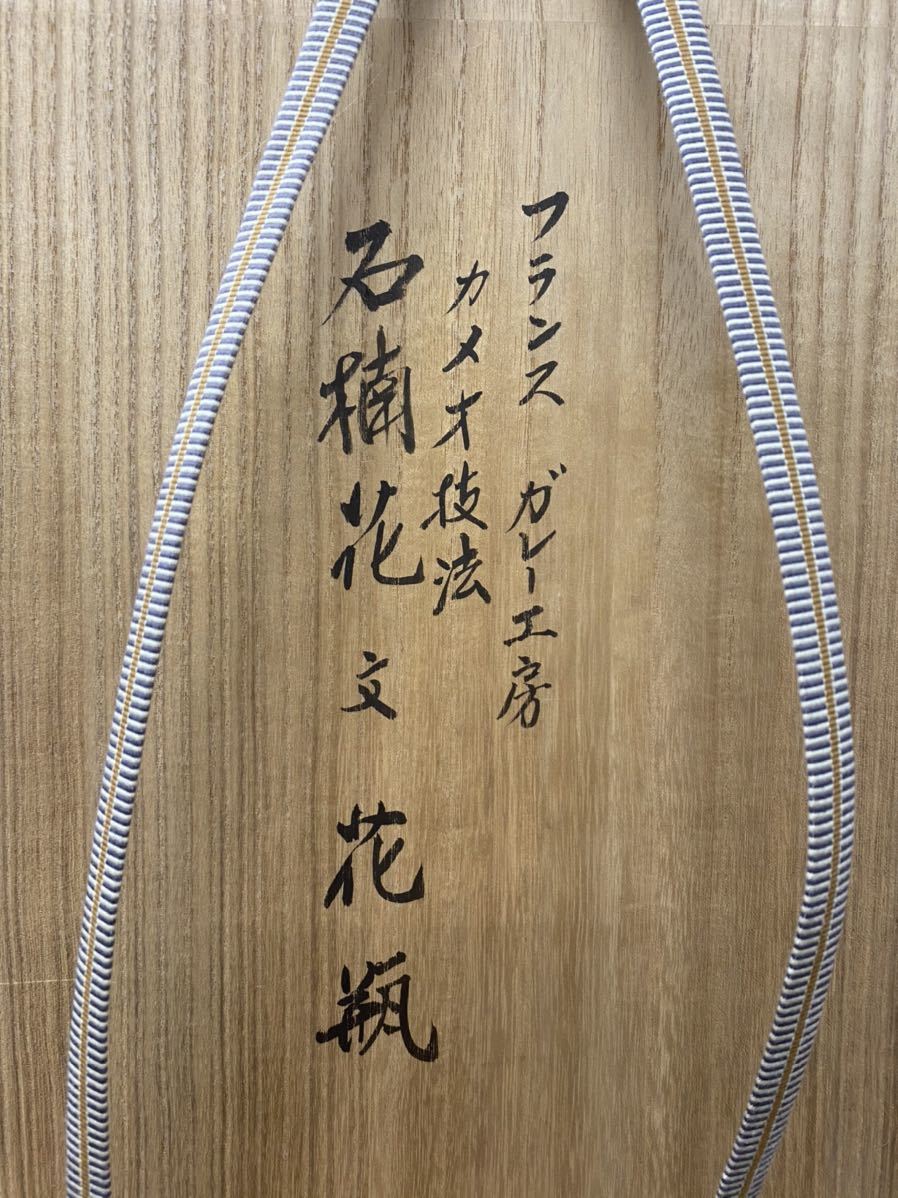 フランス ガレー工房
カメオ技法
石楠花文花瓶